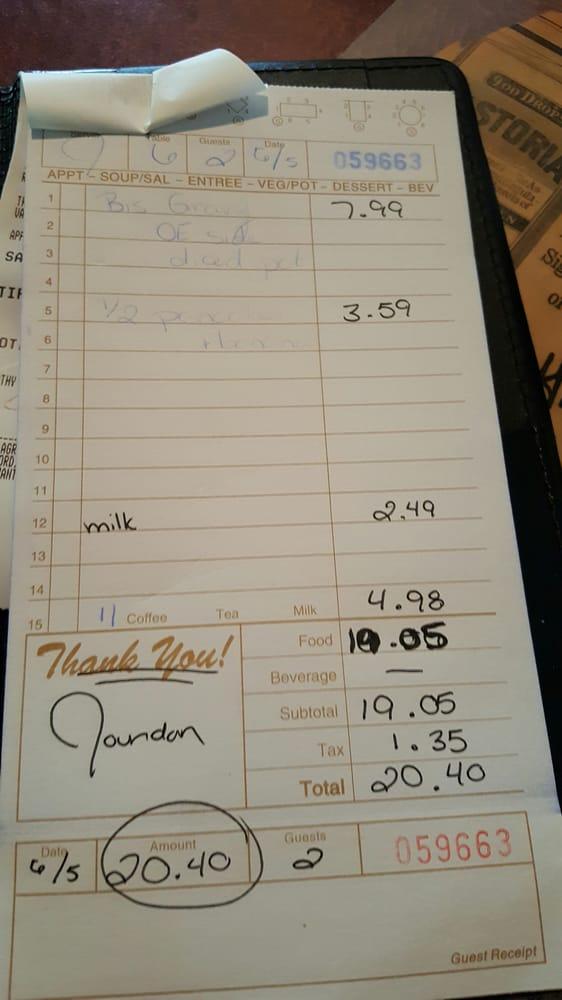 Table Guests Date
6 2 6/5 059663
APPT - SOUP/SAL - ENTREE - VEG/POT - DESSERT - BEV
1 Bis Gravy 7.99
2 OE
3 diced pot
4
5 1/2 3.59
6
7
8
9
10
11
12 milk 2.49
13
14
15 11 Coffee Tea Milk 4.98
Thank You!
Jourdan
Food 19.05
Beverage —
Subtotal 19.05
Tax 1.35
Total 20.40
Date Amount Guests
6/5 20.40 2 059663
Guest Receipt
900 DROP
STORIA